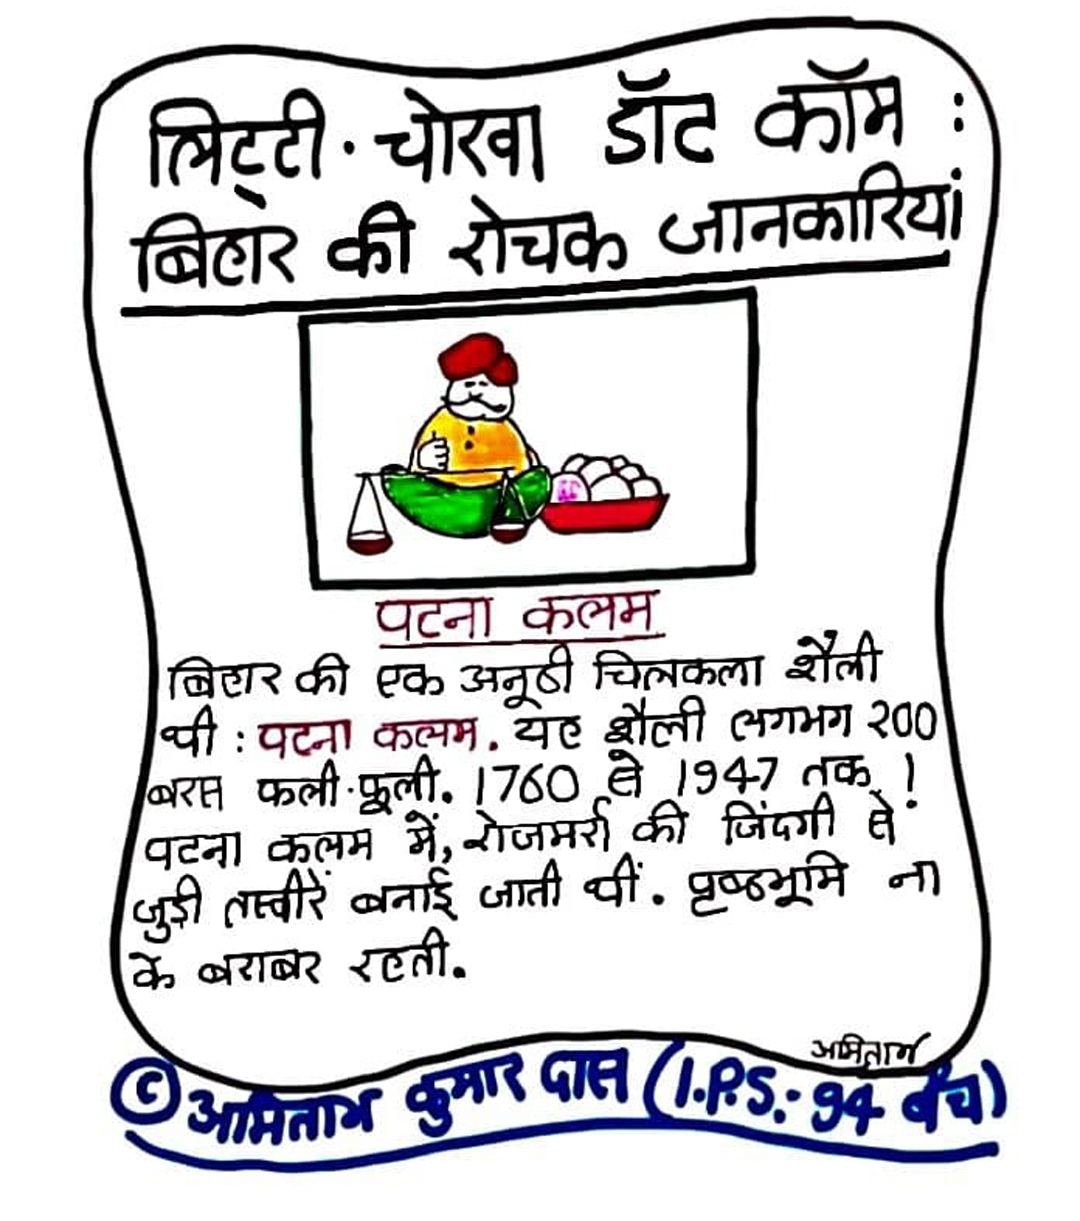 लिट्टी·चोखा डॉट कॉम :
बिहार की रोचक जानकारियां
पटना कलम
बिहार की एक अनूठी चित्रकला शैली
थी : पटना कलम. यह शैली लगभग 200
बरस फली·फूली. 1760 से 1947 तक !
पटना कलम में, रोजमर्रा की जिंदगी से
जुड़ी तस्वीरें बनाई जाती थीं. पृष्ठभूमि ना
के बराबर रहती.
अमिताभ
© अमिताभ कुमार दास (I.P.S.:- 94 बैच)